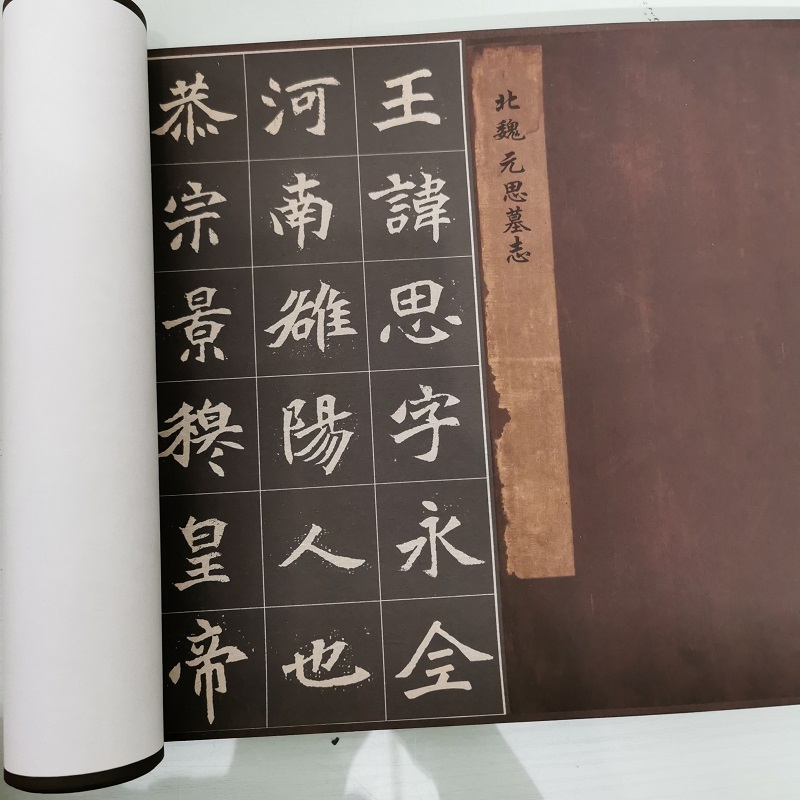 北魏 元思墓志
王諱思字永全
河南雒陽人也
恭宗景穆皇帝